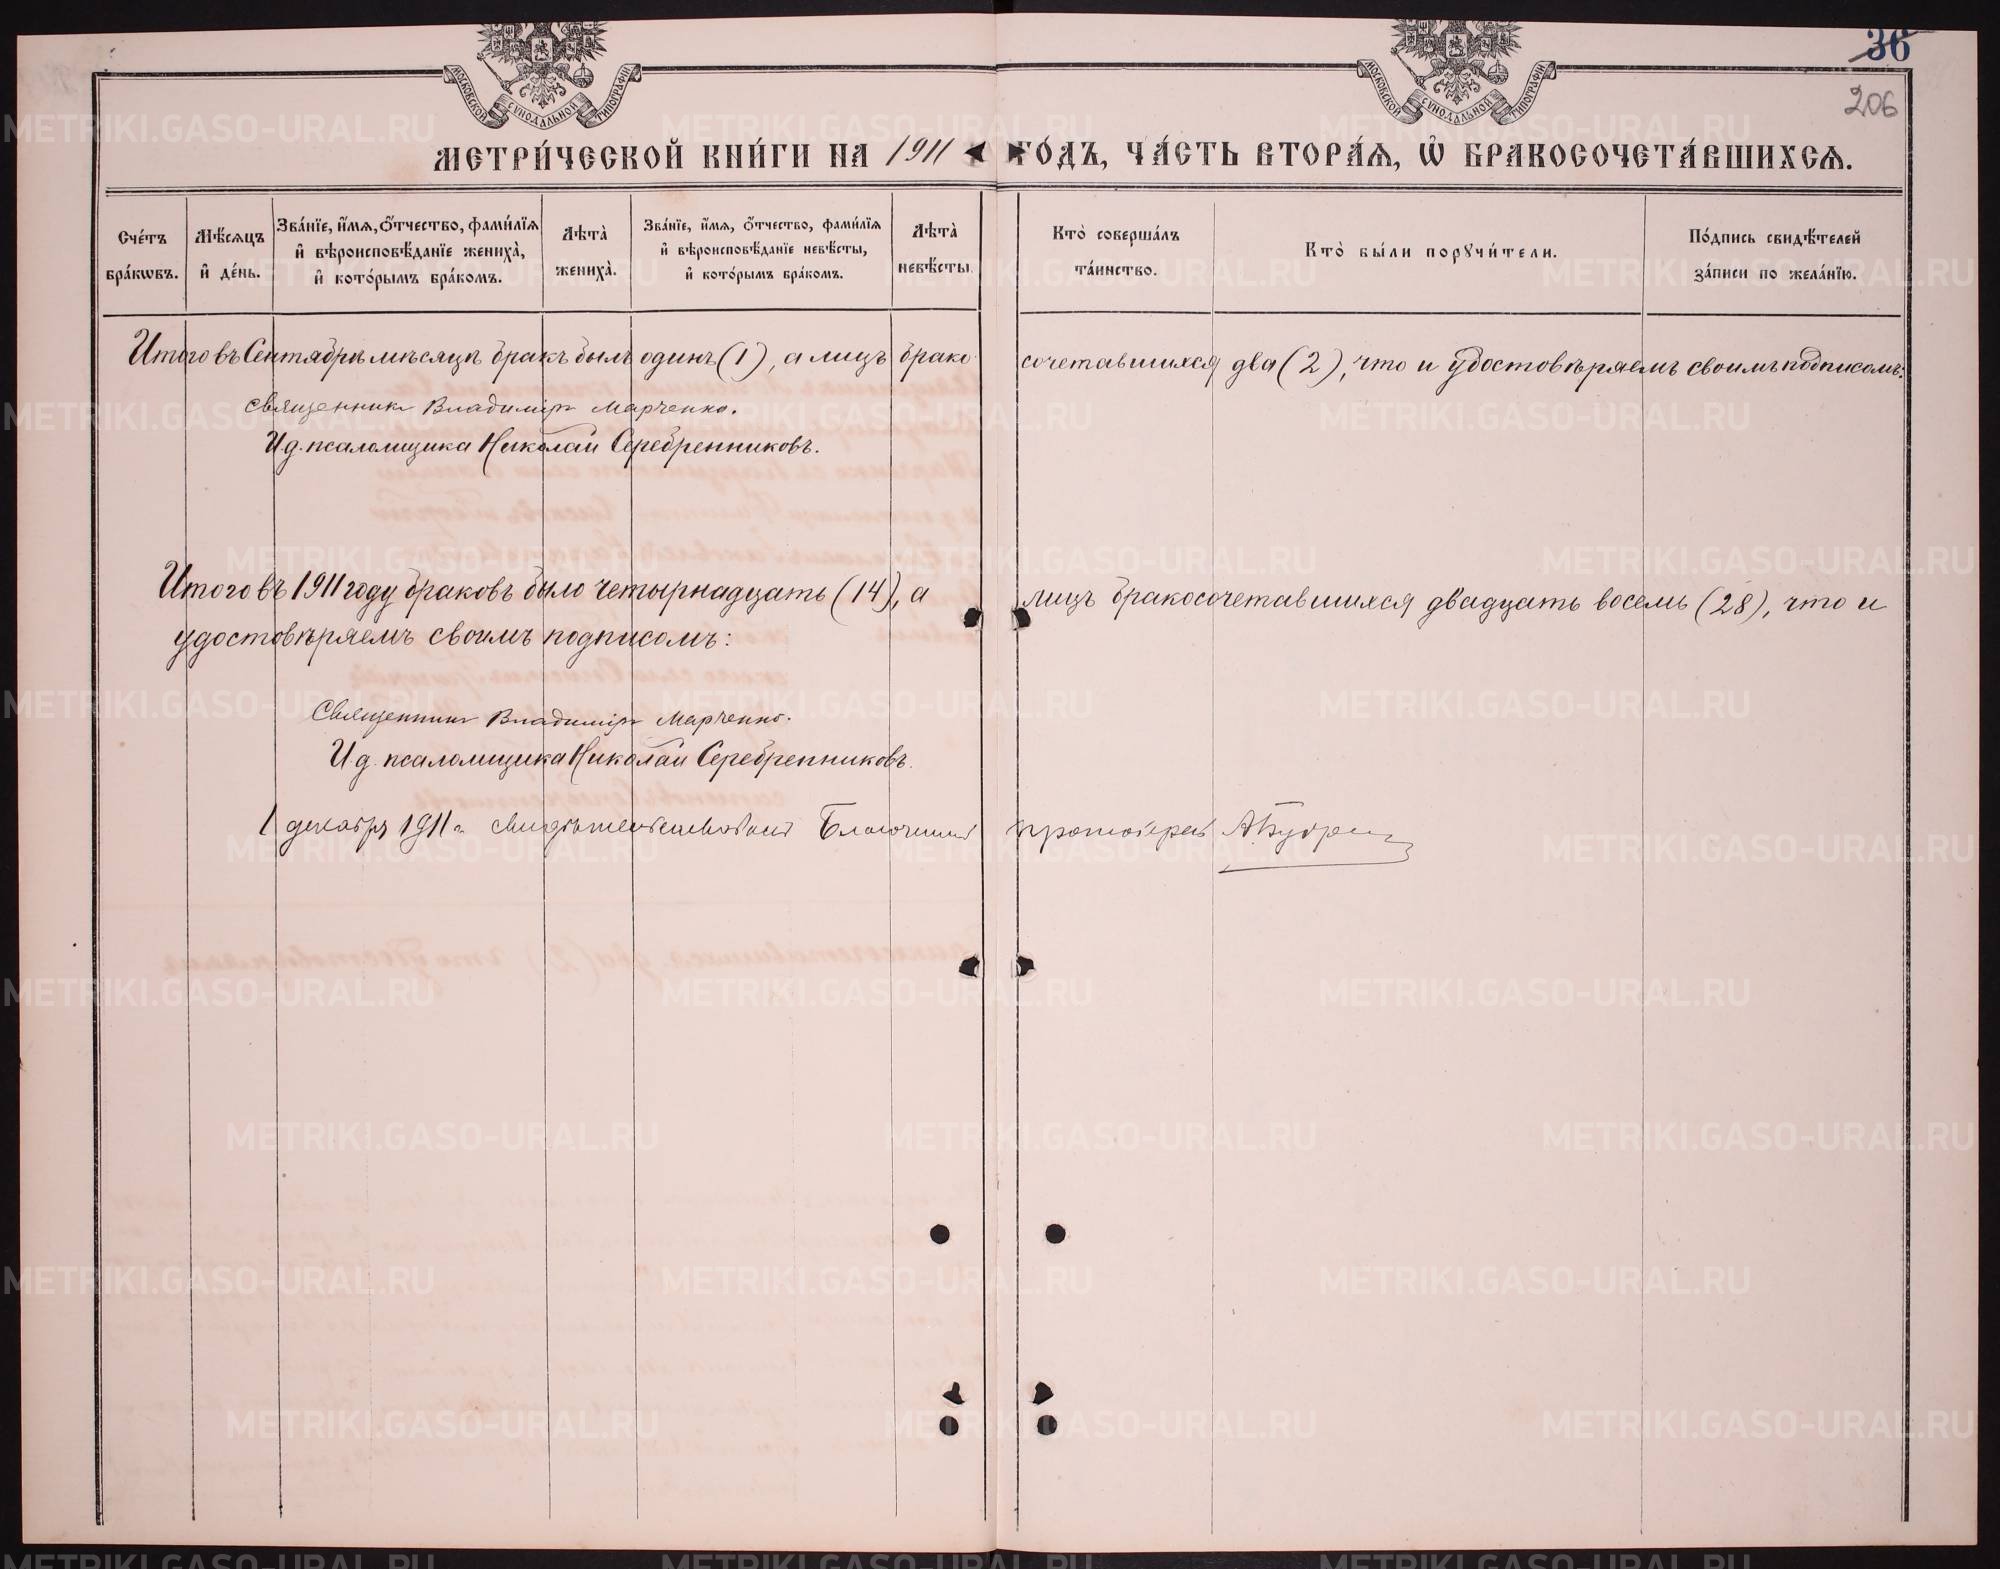 36
206
МОСКОВСКОЙ СУНОДАЛЬНОЙ ТИПОГРАФІИ
МОСКОВСКОЙ СУНОДАЛЬНОЙ ТИПОГРАФІИ
МЕТРИ́ЧЕСКОЙ КНИ́ГИ НА 1911 ГО́ДЪ, ЧА́СТЬ ВТОРА́Ѧ, Ѽ БРАКОСОЧЕТА́ВШИХСѦ.
Сче́тъ бра́кѡвъ.
Мѣ́сѧцъ и҆ де́нь.
Зва́нїе, и҆́мѧ, ѻ҆́тчество, фами́лїѧ и҆ вѣроисповѣ́данїе жениха̀, и҆ кото́рымъ бра́комъ.
Лѣта̀ жениха̀.
Зва́нїе, и҆́мѧ, ѻ҆́тчество, фами́лїѧ и҆ вѣроисповѣ́данїе невѣ́сты, и҆ кото́рымъ бра́комъ.
Лѣта̀ невѣ́сты.
Кто̀ соверша́лъ та́инство.
Кто̀ бы́ли порꙋчи́тели.
По́дпись свидѣ́телей за́писи по жела́нїю.
Итого въ Сентябрѣ мѣсяцѣ бракъ былъ одинъ (1), а лицъ брако сочетавшихся два (2), что и удостовѣряемъ своимъ подписомъ:
Священникъ Владиміръ Марченко.
И.д. псаломщика Николай Серебренниковъ.
Итого въ 1911 году браковъ было четырнадцать (14), а лицъ бракосочетавшихся двадцать восемь (28), что и
удостовѣряемъ своимъ подписомъ:
Священникъ Владиміръ Марченко.
И.д. псаломщика Николай Серебренниковъ.
1 декабря 1911 г. свидѣтельствовалъ Благочинный протоіерей
METRIKI.GASO-URAL.RU